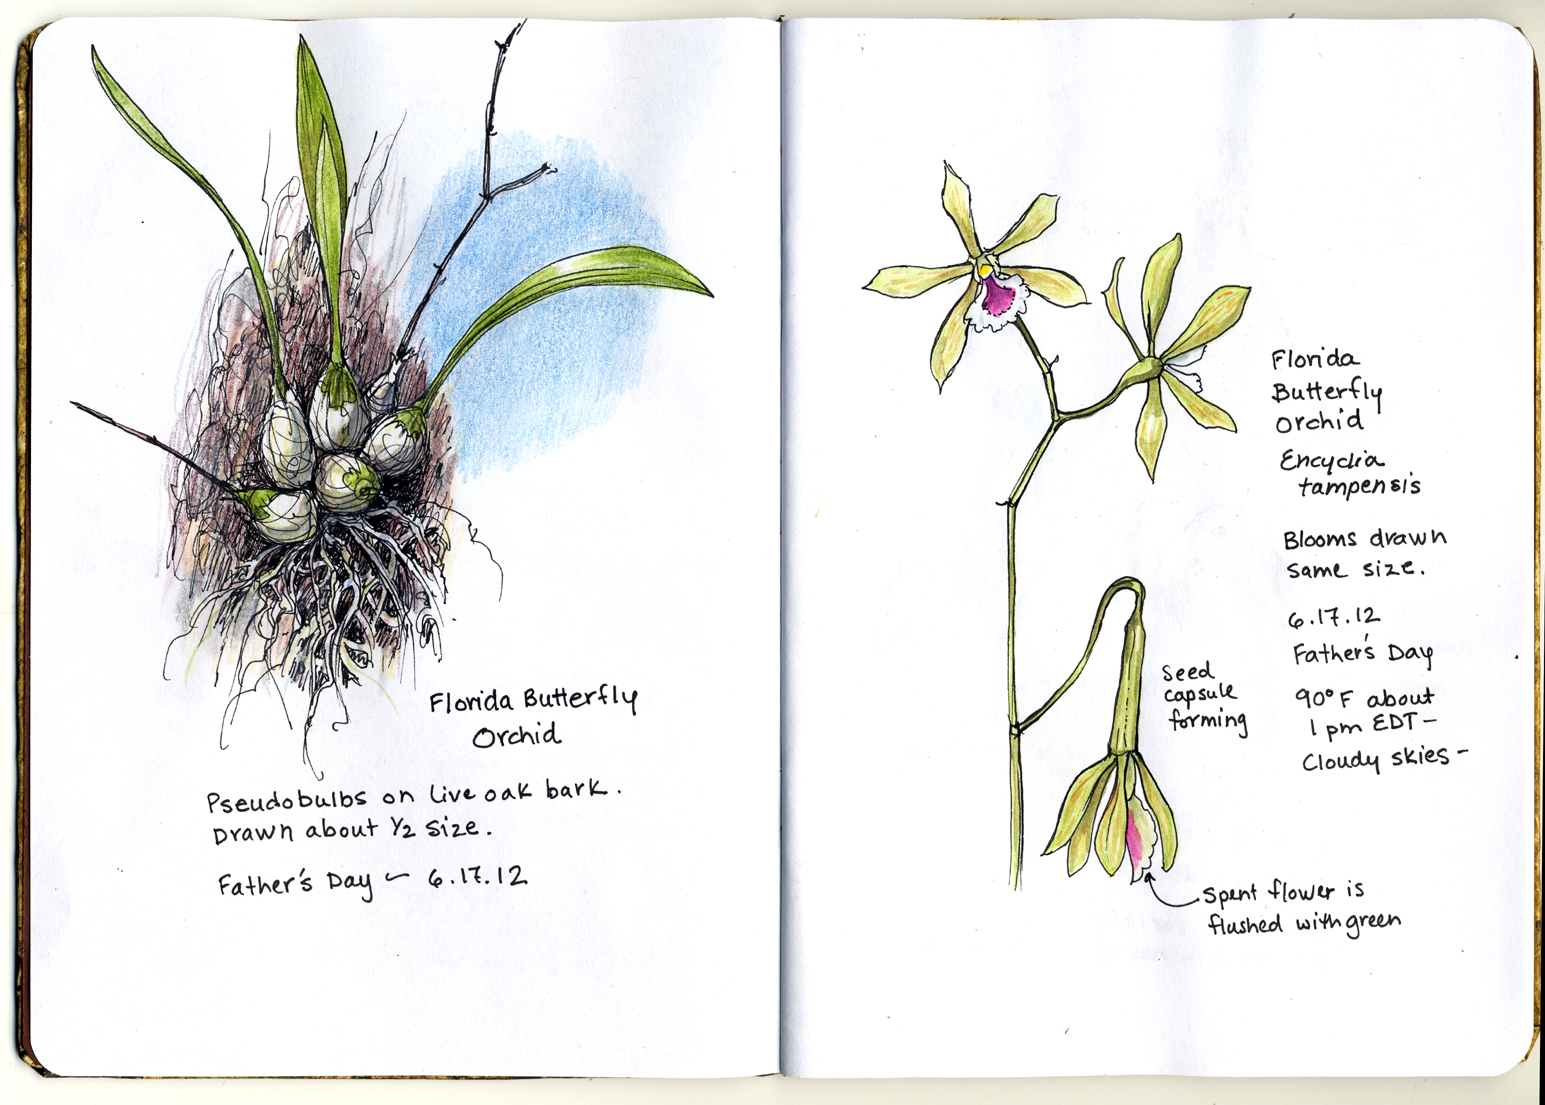 Florida Butterfly
Orchid
Pseudobulbs on live oak bark.
Drawn about 1/2 size.
Father's Day ~ 6.17.12
Florida
Butterfly
Orchid
Encyclia
tampensis
Blooms drawn
same size.
6.17.12
Father's Day
90° F about
1 pm EDT –
Cloudy skies –
Seed
capsule
forming
Spent flower is
flushed with green